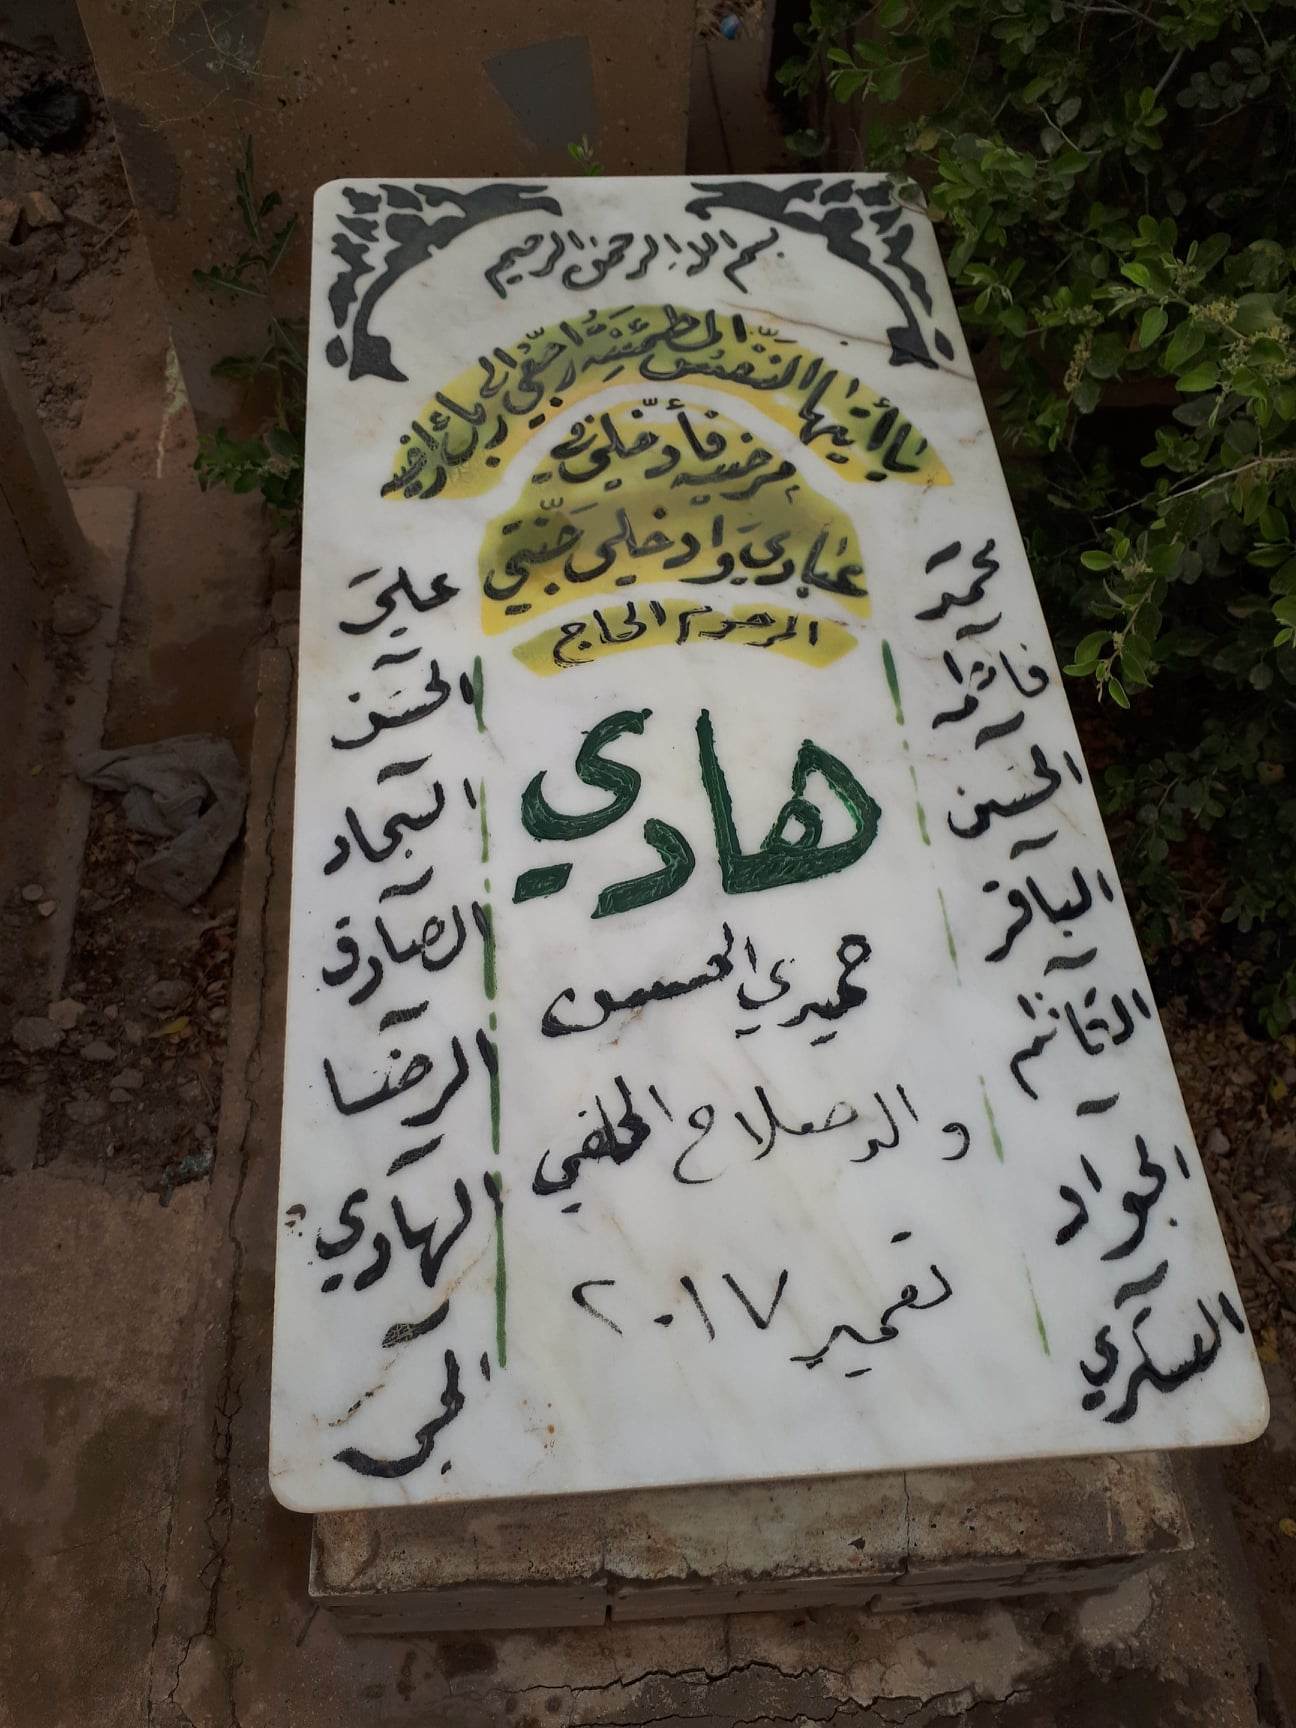 بسم الله الرحمن الرحيم
يا أيتها النفس المطمئنة ارجعي الى ربك راضية
مرضية فأدخلي في
عبادي وادخلي جنتي
المرحوم الحاج
هادي
حميدي الحسين
والد صلاح الخلفي
تعمير ٢٠١٧
محمد
فاطمة
الحسين
الباقر
الكاظم
الجواد
العسكري
علي
الحسن
السجاد
الصادق
الرضا
الهادي